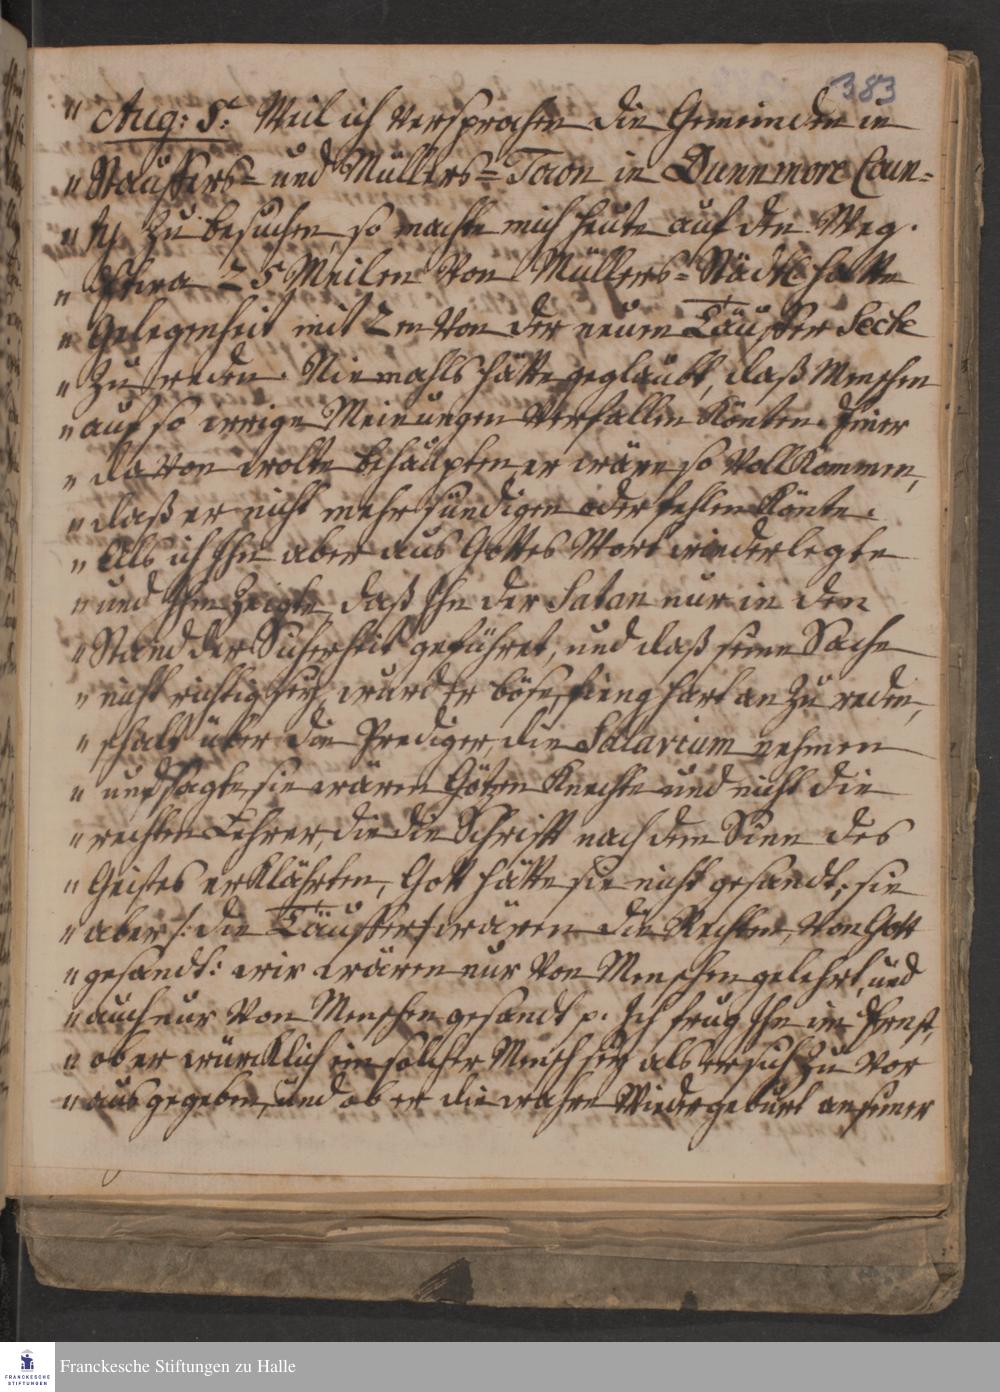 383
" Aug: 5t: Weil ich versprochen die Gemeinden in
" Stauffers= und Müllers=Taon in Dunnmore Coun=
" ty zu besuchen, so machte mich heute auf den Weg.
" Etwa 25 Meilen von Müllers=Städtle hatte
" Gelegenheit mit 2en von der neuen Täuffer Secte
" zu reden. Niemahls hätte geglaubt, daß Menschen
" auf so irrige Meinungen verfallen könten. Einer
" davon wolte behaupten er wäre so vollkommen,
" daß er nicht mehr sündigen oder fehlen könte.
" Als ich Ihn aber aus Gottes Wort wiederlegte
" und Ihm zeigte, daß Ihn der Satan nur in den
" Stand der Sicherheit geführet, und daß seine Sache
" nicht richtig sey, wurd Er böse fieng hart an zu reden,
" schalt über die Prediger, die Salarium nehmen
" und sagte, sie wären Götzen Knechte und nicht die
" rechten Lehrer, die die Schrifft nach dem Sinn des
" Geistes erklährten, Gott hätte sie nicht gesandt; sie
" aber /: die Täuffer :/ wären die Rechten, von Gott
" gesandt: wir wären nur von Menschen gelehrt, und
" auch nur von Menschen gesandt p. Ich frug Ihn im Ernst,
" ob er würcklich ein solcher Mensch sey als er sich zu vor
" ausgegeben, und ob er die wahre Wiedergeburt an seiner
FRANCKESCHE
STIFTUNGEN
Franckesche Stiftungen zu Halle